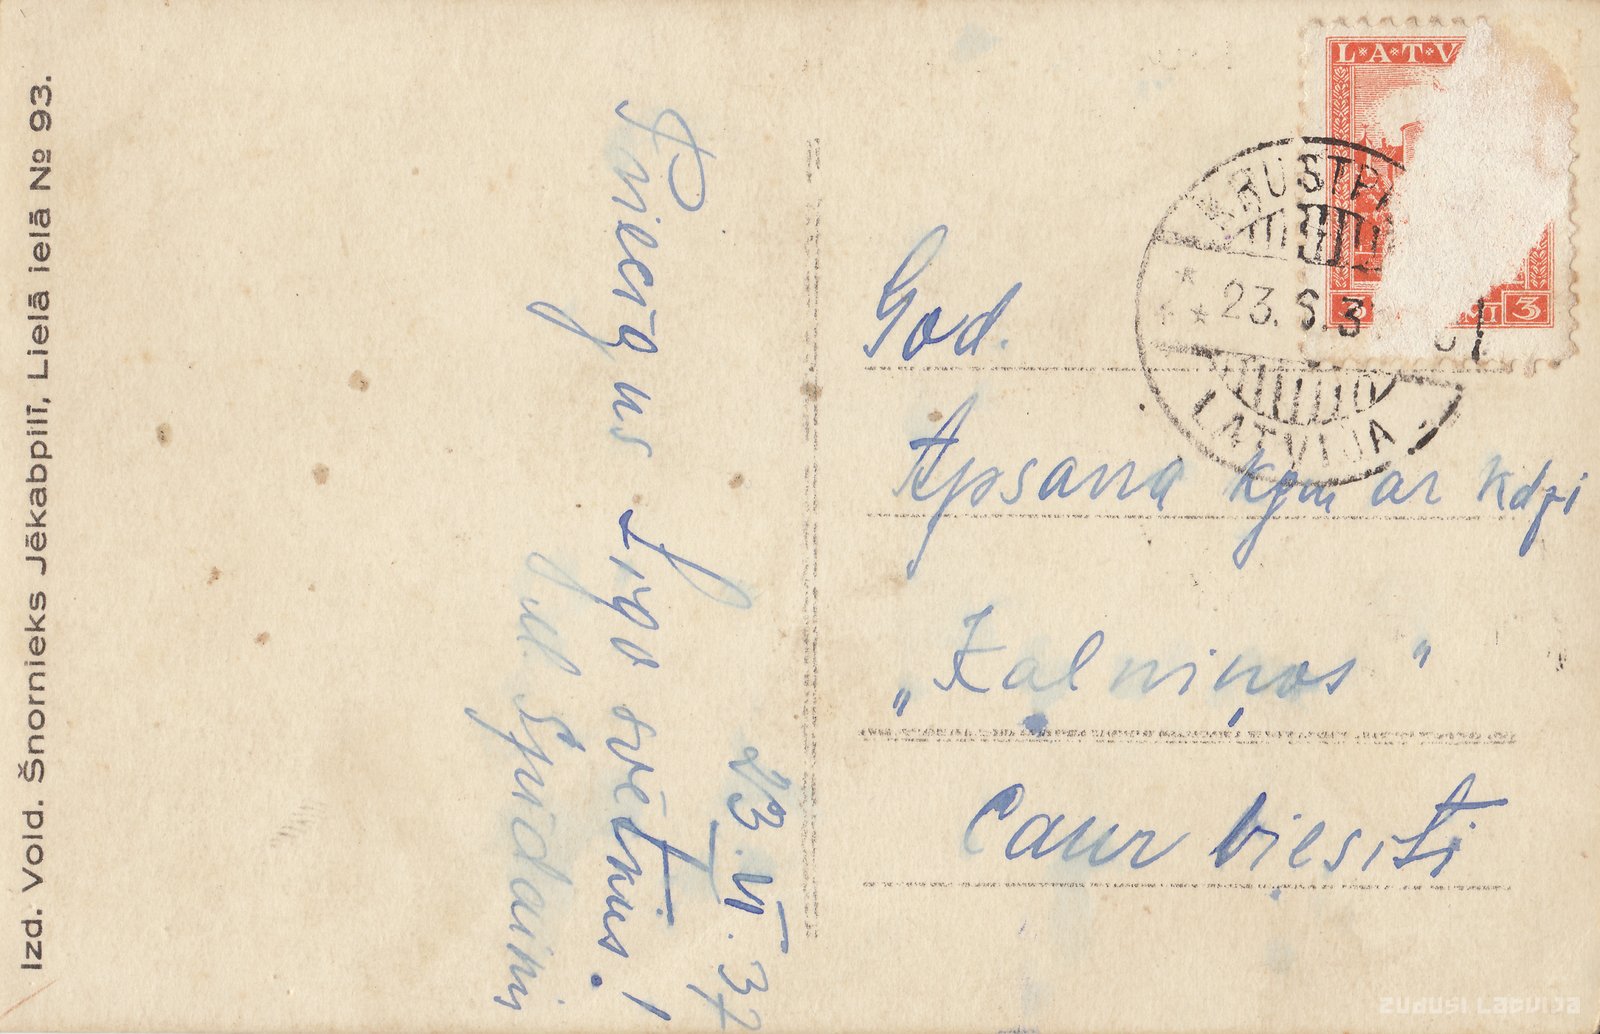 Izd. Vold. Šnornieks Jēkabpilī, Lielā ielā № 93.
Priecīgus Līgo svētkus!
23.VI.37
LATV
3 3
KRUSTP
23. 6. 3
LATVIJA
God.
Apsana kgm ar kdzi
„Kalniņos"
Caur Viesīti
zudusi Latvija